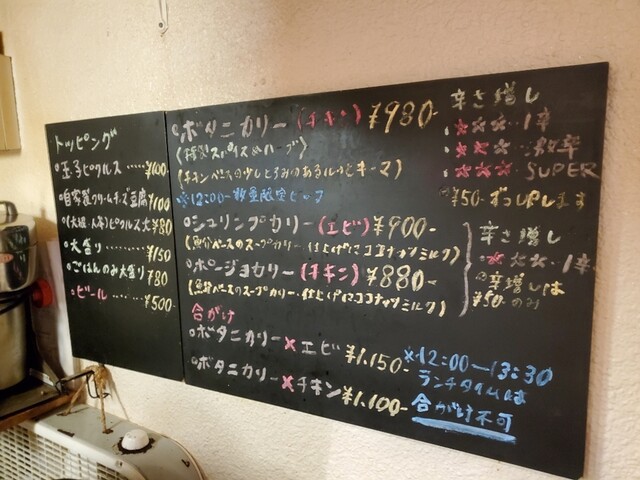 トッピング
玉子ピクルス……¥100
自家製クリームチーズ豆腐 ¥100
(大根・人参)ピクルス大 ¥80
大盛り……¥150
ごはんのみ大盛り ¥80
ビール……¥500-
ボタニカリー(チキン) ¥980-
(特製スパイス&ハーブ)
(チキンベースの少しとろみのあるルーとキーマ)
※12:00-数量限定
シュリンプカリー(エビ) ¥900-
(魚介ベースのスープカリー・仕上げにココナッツミルク)
ポージョカリー(チキン) ¥880-
(魚介ベースのスープカリー・仕上げにココナッツミルク)
合がけ
ボタニカリー×エビ ¥1.150-
ボタニカリー×チキン ¥1.100-
※12:00―13:30
ランチタイムは
合がけ不可
辛さ増し
★☆☆‥1辛
★★☆‥激辛
★★★‥SUPER
¥50-ずつ増します
辛さ増し
★☆☆‥1辛
辛増しは
¥50-のみ